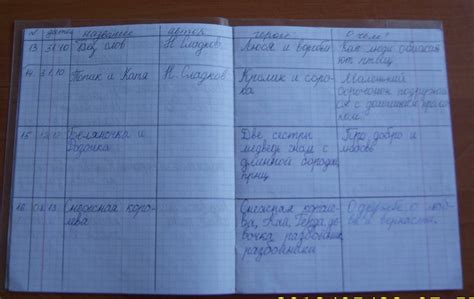 N дата название автор герои О чем?
13 31.10 Без слов Н. Сладков Люся и воробьи Как люди обижают птиц
14. 31.10 Топик и Катя Н. Сладков. Кролик и сорока Маленький сорочонок подружился с домашним кроликом.
15 Беляночка и Розочка Две сестры медведь гном с длинной бородой, принц Про добро и
16 Снежная королева Снежная королева, Кай, Герда девочка разбойница разбойники О дружбе, о любви и верности.